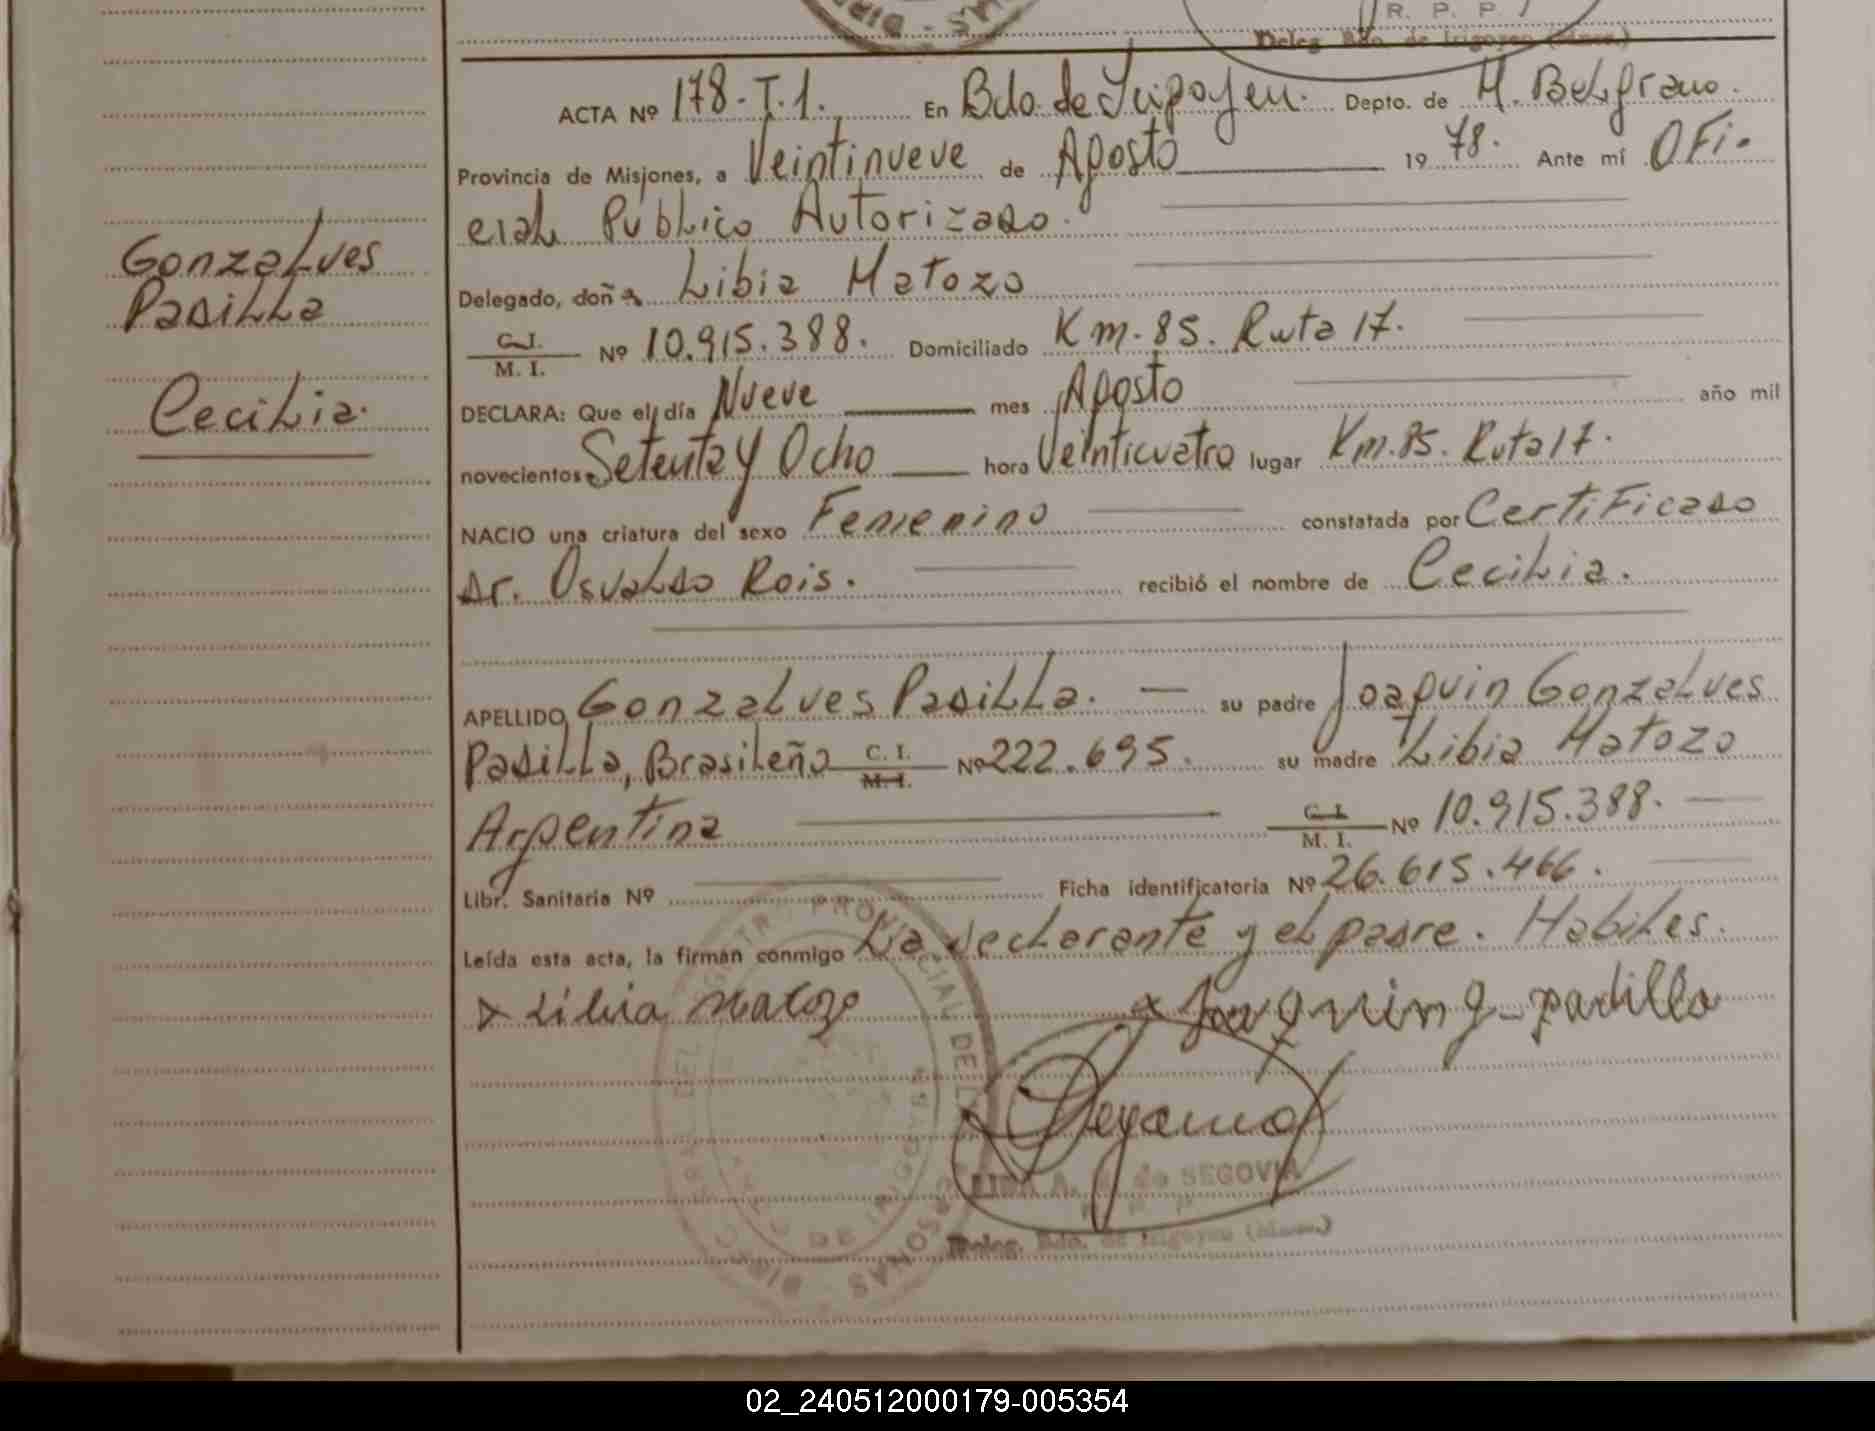 R. P. P.
Deleg. Bdo. de Irigoyen (Mnes.)
ACTA Nº 178-T.1. En Bdo. de Irigoyen. Depto. de M. Belgrano.
Provincia de Misiones, a Veintinueve de Agosto 1978. Ante mí OFi-
cial Público Autorizado.
Delegado, doña Libia Matozo
C.I. M. I. Nº 10.915.388. Domiciliado Km-85. Ruta 17.
DECLARA: Que el día Nueve mes Agosto año mil
novecientos Setenta y Ocho hora Veinticuatro lugar Km.85. Ruta 17.
NACIO una criatura del sexo Femenino constatada por Certificado
Dr. Osvaldo Rois. recibió el nombre de Cecilia.
APELLIDO Gonzalves Padilla. su padre Joaquin Gonzalves
Padilla, Brasileño C. I. M. I. Nº 222.695. su madre Libia Matozo
Argentina C. I. M. I. Nº 10.915.388.
Libr. Sanitaria Nº Ficha identificatoria Nº 26.615.466.
Leída esta acta, la firman conmigo La declarante y el padre. Habiles.
Libia Matozo Joaquin g_padilla
de SEGOVIA
Deleg. Bdo. de Irigoyen (Mnes.)
Gonzalves
Padilla
Cecilia.
02_240512000179-005354